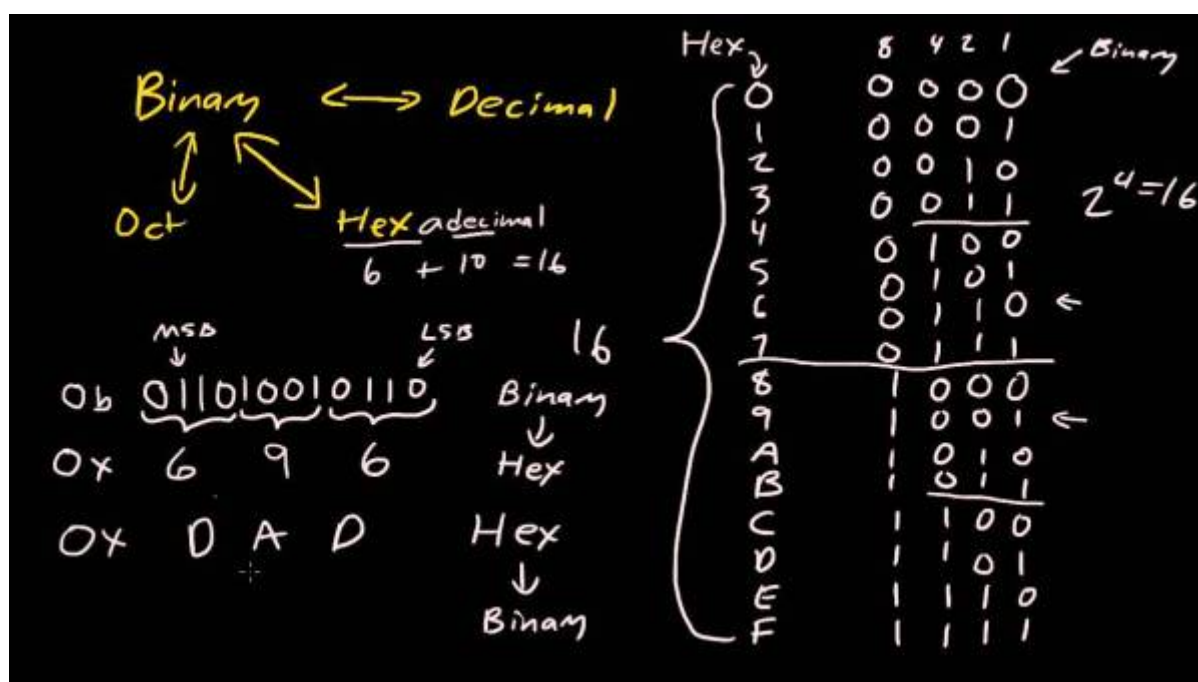 Binary ↔ Decimal
Oct
Hexadecimal
6 + 10 = 16
MSB LSB
0b 011010010110 Binary
0x 6 9 6 Hex
0x D A D Hex
Binary
16
Hex 8 4 2 1 Binary
0 0 0 0 0
1 0 0 0 1
2 0 0 1 0
3 0 0 1 1
2^4=16
4 0 1 0 0
5 0 1 0 1
6 0 1 1 0
7 0 1 1 1
8 1 0 0 0
9 1 0 0 1
A 1 0 1 0
B 1 0 1 1
C 1 1 0 0
D 1 1 0 1
E 1 1 1 0
F 1 1 1 1